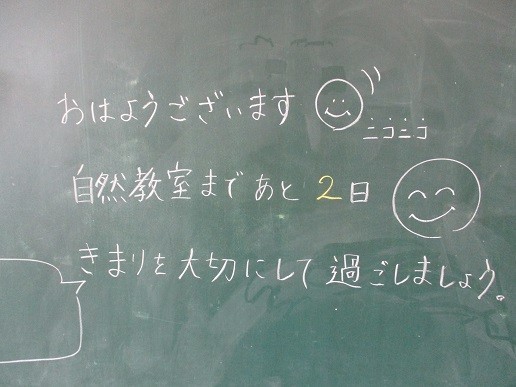 おはようございます
ニコニコ
自然教室まであと2日
きまりを大切にして過ごしましょう。